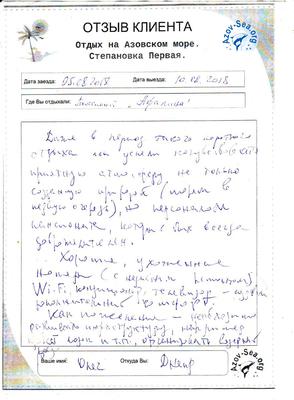 ОТЗЫВ КЛИЕНТА
Отдых на Азовском море.
Степановка Первая.
Azov-Sea.org
Дата заезда: 05.08.2018 Дата выезда: 10.08.2018
Где Вы отдыхали:
Даже в период такого короткого
отдыха мы успели почувствовать
приятную атмосферу не только
созданную природой (морем в
), но персоналом
пансионата, который был всегда
доброжелателен.
Хорошие, ухоженные
номера (с ремонтом)
Wi-Fi, кондиционер, телевизор -
дополнительный комфорт.
Как пожелания - необходимо
развивать инфраструктуру, например
и т.п., организовать
Ваше имя: Олег Откуда Вы: Днепр
Azov-Sea.org